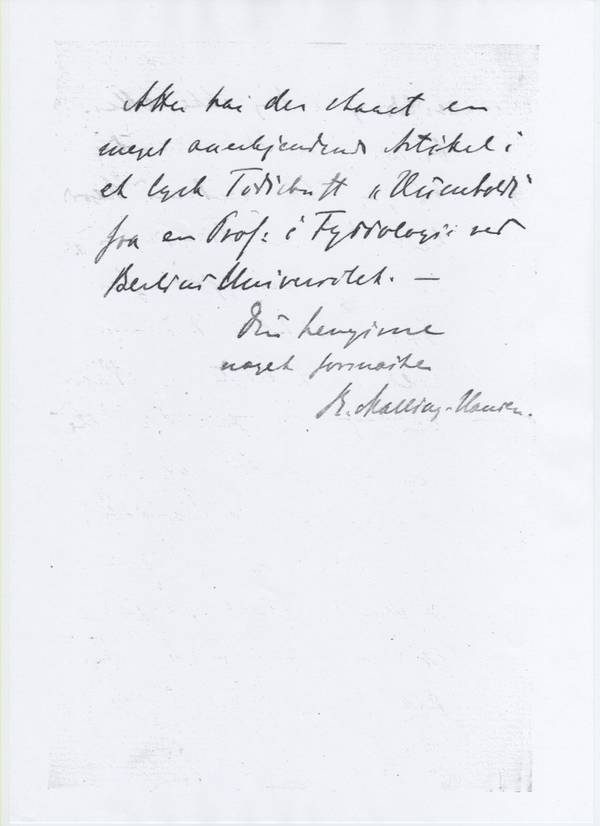 Atter har der staaet en
meget anerkjendende Artikel i
et tysk Tidsskrift „Humboldt“
fra en Prof. i Fysiologi ved
Berlins Universitet. —
Din hengivne
noget forsnakkede
R. Malling-Hansen.